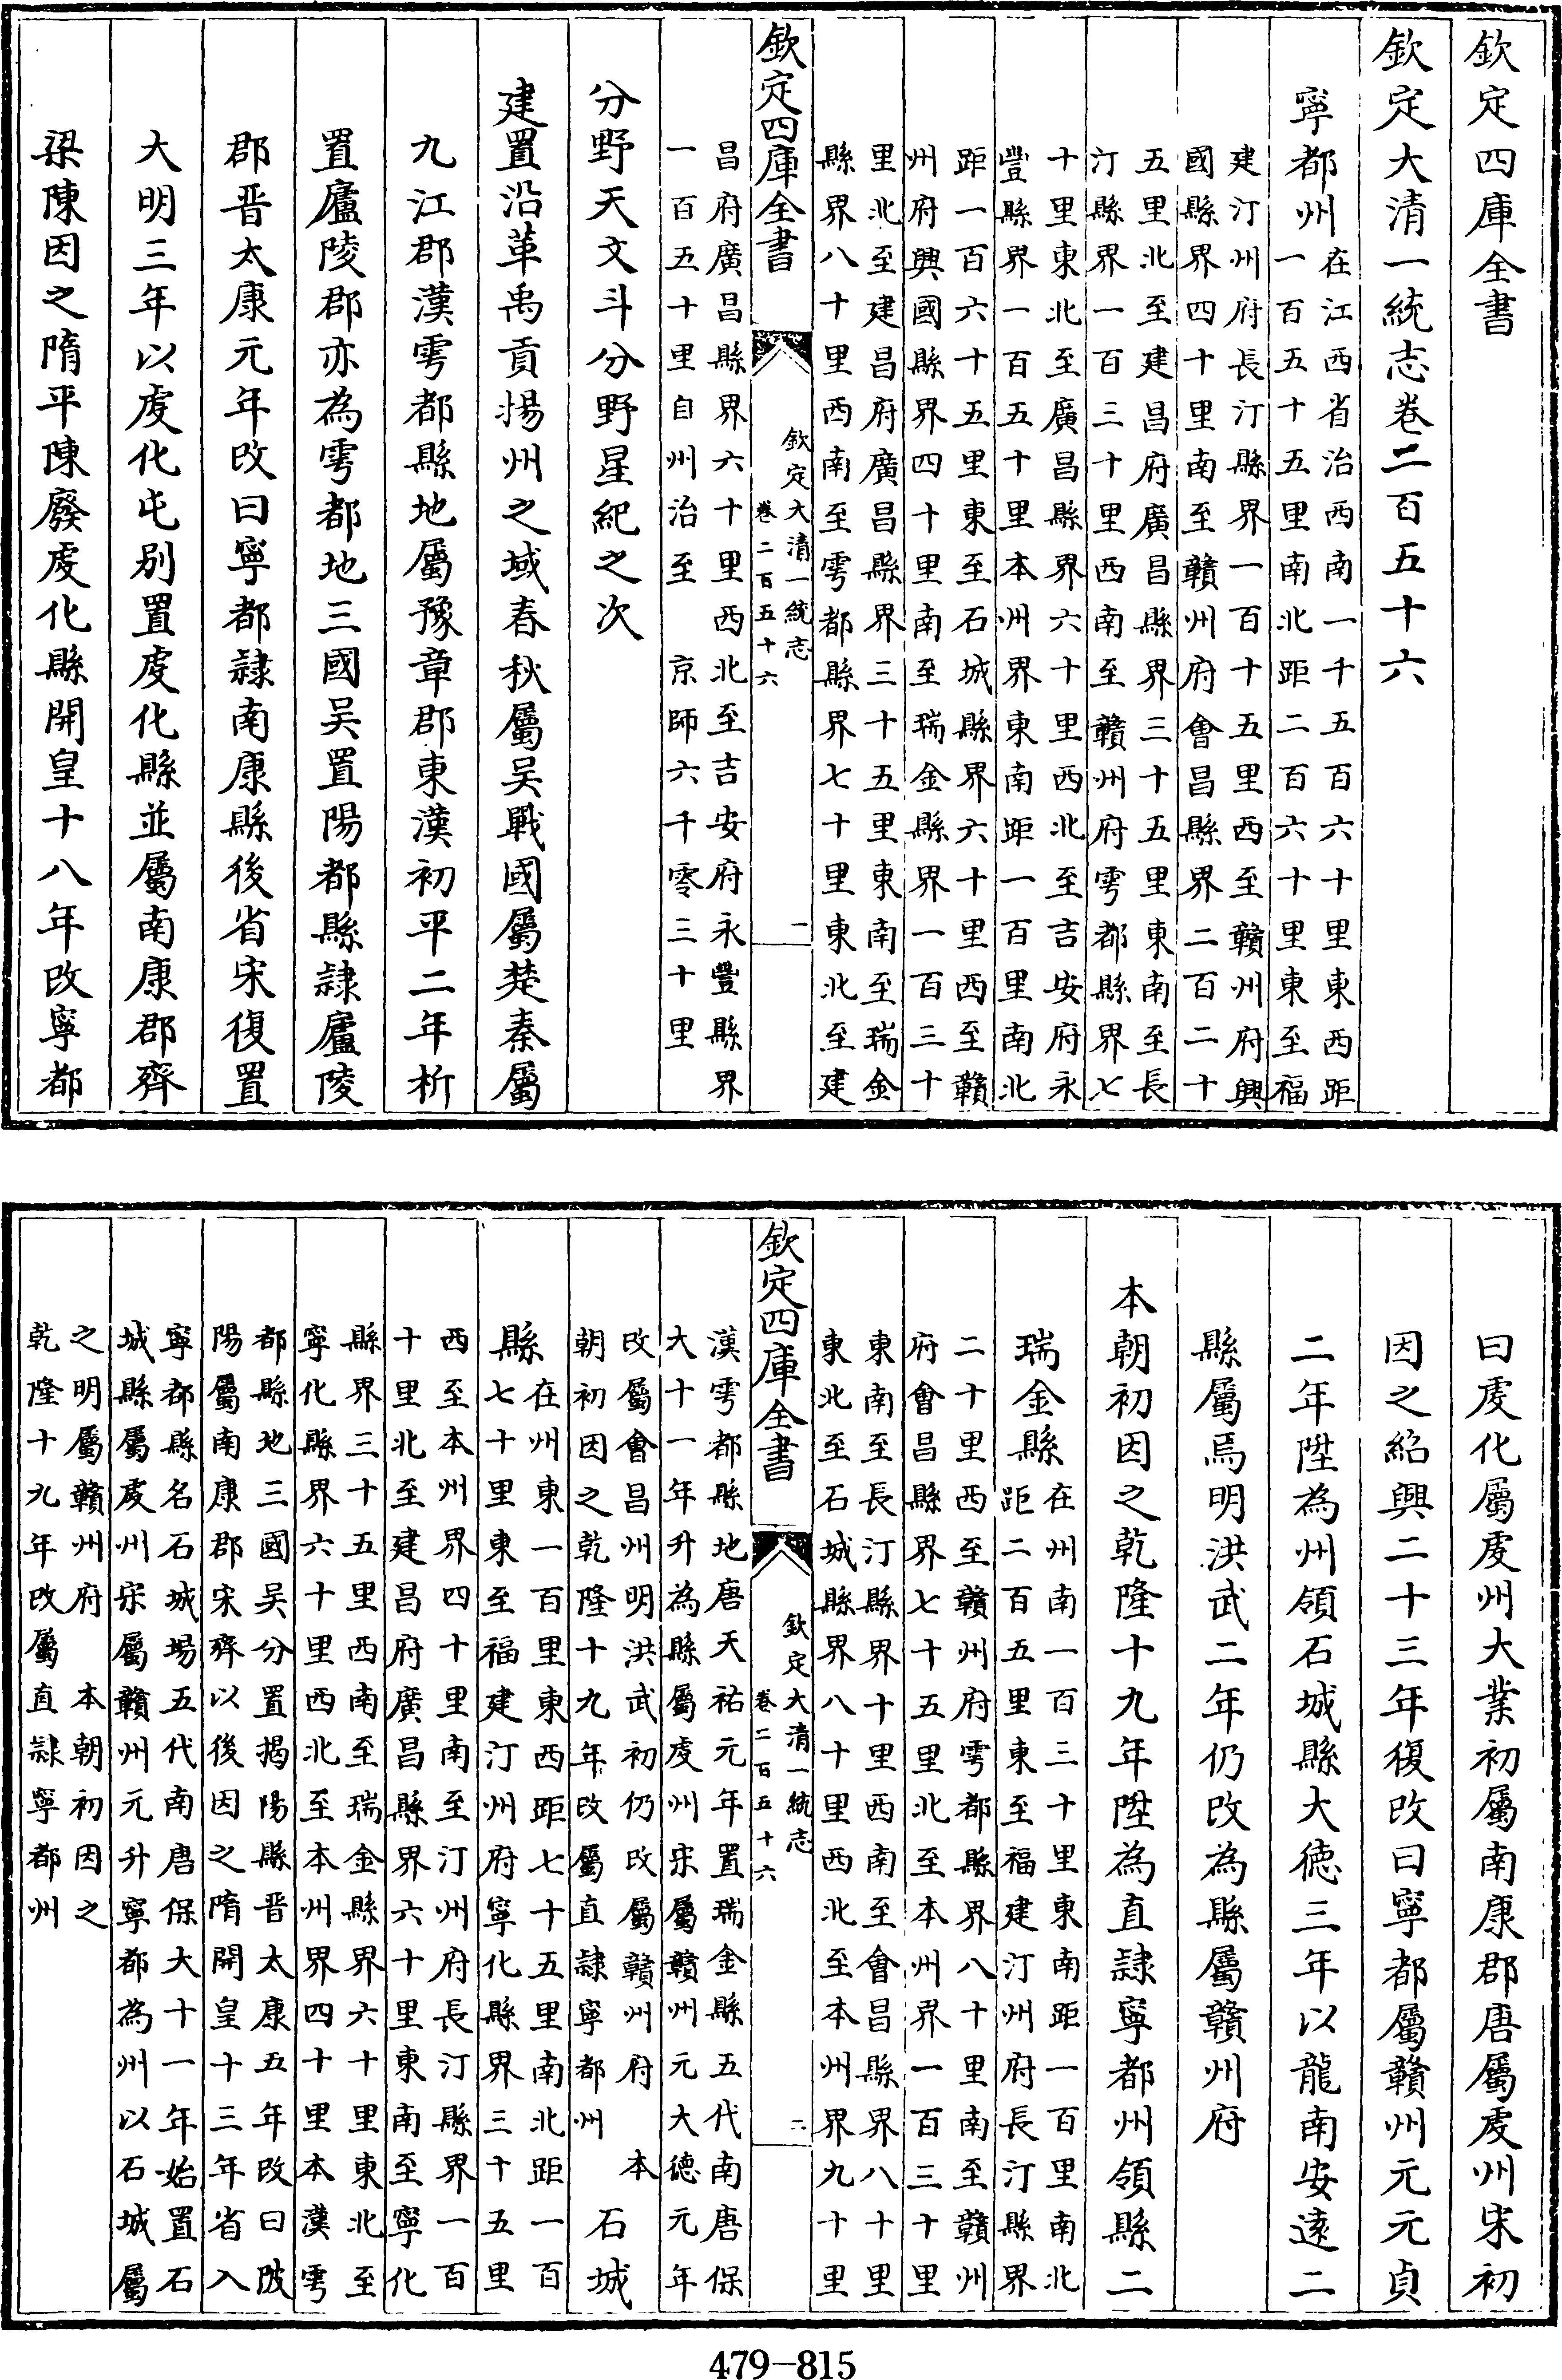 欽定四庫全書
欽定大清一統志卷二百五十六
寧都州
在江西省治西南一千五百六十里東西距
一百五十五里南北距二百六十里東至福
建汀州府長汀縣界一百十五里西至贛州府興
國縣界四十里南至贛州府會昌縣界二百二十
五里北至建昌府廣昌縣界三十五里東南至長
汀縣界一百三十里西南至贛州府雩都縣界七
十里東北至廣昌縣界六十里西北至吉安府永
豐縣界一百五十里本州界東南距一百里南北
距一百六十五里東至石城縣界六十里西至贛
州府興國縣界四十里南至瑞金縣界一百三十
里北至建昌府廣昌縣界三十五里東南至瑞金
縣界八十里西南至雩都縣界七十里東北至建
欽定四庫全書
欽定大清一統志
卷二百五十六
一
昌府廣昌縣界六十里西北至吉安府永豐縣界
一百五十里自州治至 京師六千零三十里
分野天文斗分野星紀之次
建置沿革禹貢揚州之域春秋屬吳戰國屬楚秦屬
九江郡漢雩都縣地屬豫章郡東漢初平二年析
置廬陵郡亦為雩都地三國吳置陽都縣隸廬陵
郡晉太康元年改曰寧都隸南康縣後省宋復置
大明三年以虔化屯别置虔化縣並屬南康郡齊
梁陳因之隋平陳廢虔化縣開皇十八年改寧都
曰虔化屬虔州大業初屬南康郡唐屬虔州宋初
因之紹興二十三年復改曰寧都屬贛州元元貞
二年陞為州領石城縣大德三年以龍南安遠二
縣屬焉明洪武二年仍改為縣屬贛州府
本朝初因之乾隆十九年陞為直隸寧都州領縣二
瑞金縣
在州南一百三十里東南距一百里南北
距二百五里東至福建汀州府長汀縣界
二十里西至贛州府雩都縣界八十里南至贛州
府會昌縣界七十五里北至本州界一百三十里
東南至長汀縣界十里西南至會昌縣界八十里
東北至石城縣界八十里西北至本州界九十里
欽定四庫全書
欽定大清一統志
卷二百五十六
二
漢雩都縣地唐天祐元年置瑞金縣五代南唐保
大十一年升為縣屬虔州宋屬贛州元大德元年
改屬會昌州明洪武初仍改屬贛州府 本
朝初因之乾隆十九年改屬直隸寧都州
石城
縣
在州東一百里東西距七十五里南北距一百
七十里東至福建汀州府寧化縣界三十五里
西至本州界四十里南至汀州府長汀縣界一百
十里北至建昌府廣昌縣界六十里東南至寧化
縣界三十五里西南至瑞金縣界六十里東北至
寧化縣界六十里西北至本州界四十里本漢雩
都縣地三國吳分置揭陽縣晉太康五年改曰陂
陽屬南康郡宋齊以後因之隋開皇十三年省入
寧都縣名石城場五代南唐保大十一年始置石
城縣屬虔州宋屬贛州元升寧都為州以石城屬
之明屬贛州府 本朝初因之
乾隆十九年改屬直隸寧都州
479-815